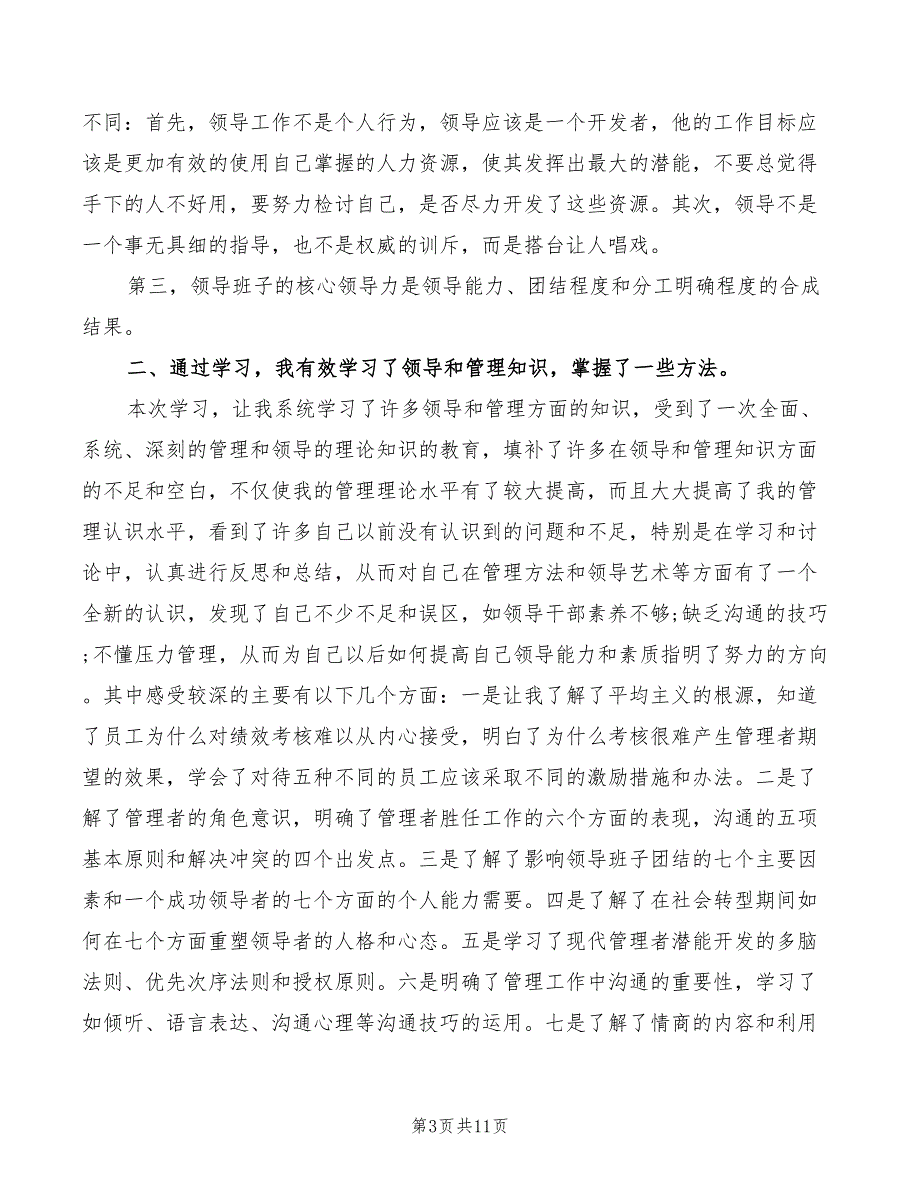 不同：首先，领导工作不是个人行为，领导应该是一个开发者，他的工作目标应
该是更加有效的使用自己掌握的人力资源，使其发挥出最大的潜能，不要总觉得
手下的人不好用，要努力检讨自己，是否尽力开发了这些资源。其次，领导不是
一个事无具细的指导，也不是权威的训斥，而是搭台让人唱戏。
第三，领导班子的核心领导力是领导能力、团结程度和分工明确程度的合成
结果。
二、通过学习，我有效学习了领导和管理知识，掌握了一些方法。
本次学习，让我系统学习了许多领导和管理方面的知识，受到了一次全面、
系统、深刻的管理和领导的理论知识的教育，填补了许多在领导和管理知识方面
的不足和空白，不仅使我的管理理论水平有了较大提高，而且大大提高了我的管
理认识水平，看到了许多自己以前没有认识到的问题和不足，特别是在学习和讨
论中，认真进行反思和总结，从而对自己在管理方法和领导艺术等方面有了一个
全新的认识，发现了自己不少不足和误区，如领导干部素养不够;缺乏沟通的技巧
;不懂压力管理，从而为自己以后如何提高自己领导能力和素质指明了努力的方向
。其中感受较深的主要有以下几个方面：一是让我了解了平均主义的根源，知道
了员工为什么对绩效考核难以从内心接受，明白了为什么考核很难产生管理者期
望的效果，学会了对待五种不同的员工应该采取不同的激励措施和办法。二是了
解了管理者的角色意识，明确了管理者胜任工作的六个方面的表现，沟通的五项
基本原则和解决冲突的四个出发点。三是了解了影响领导班子团结的七个主要因
素和一个成功领导者的七个方面的个人能力需要。四是了解了在社会转型期间如
何在七个方面重塑领导者的人格和心态。五是学习了现代管理者潜能开发的多脑
法则、优先次序法则和授权原则。六是明确了管理工作中沟通的重要性，学习了
如倾听、语言表达、沟通心理等沟通技巧的运用。七是了解了情商的内容和利用
第3页共11页